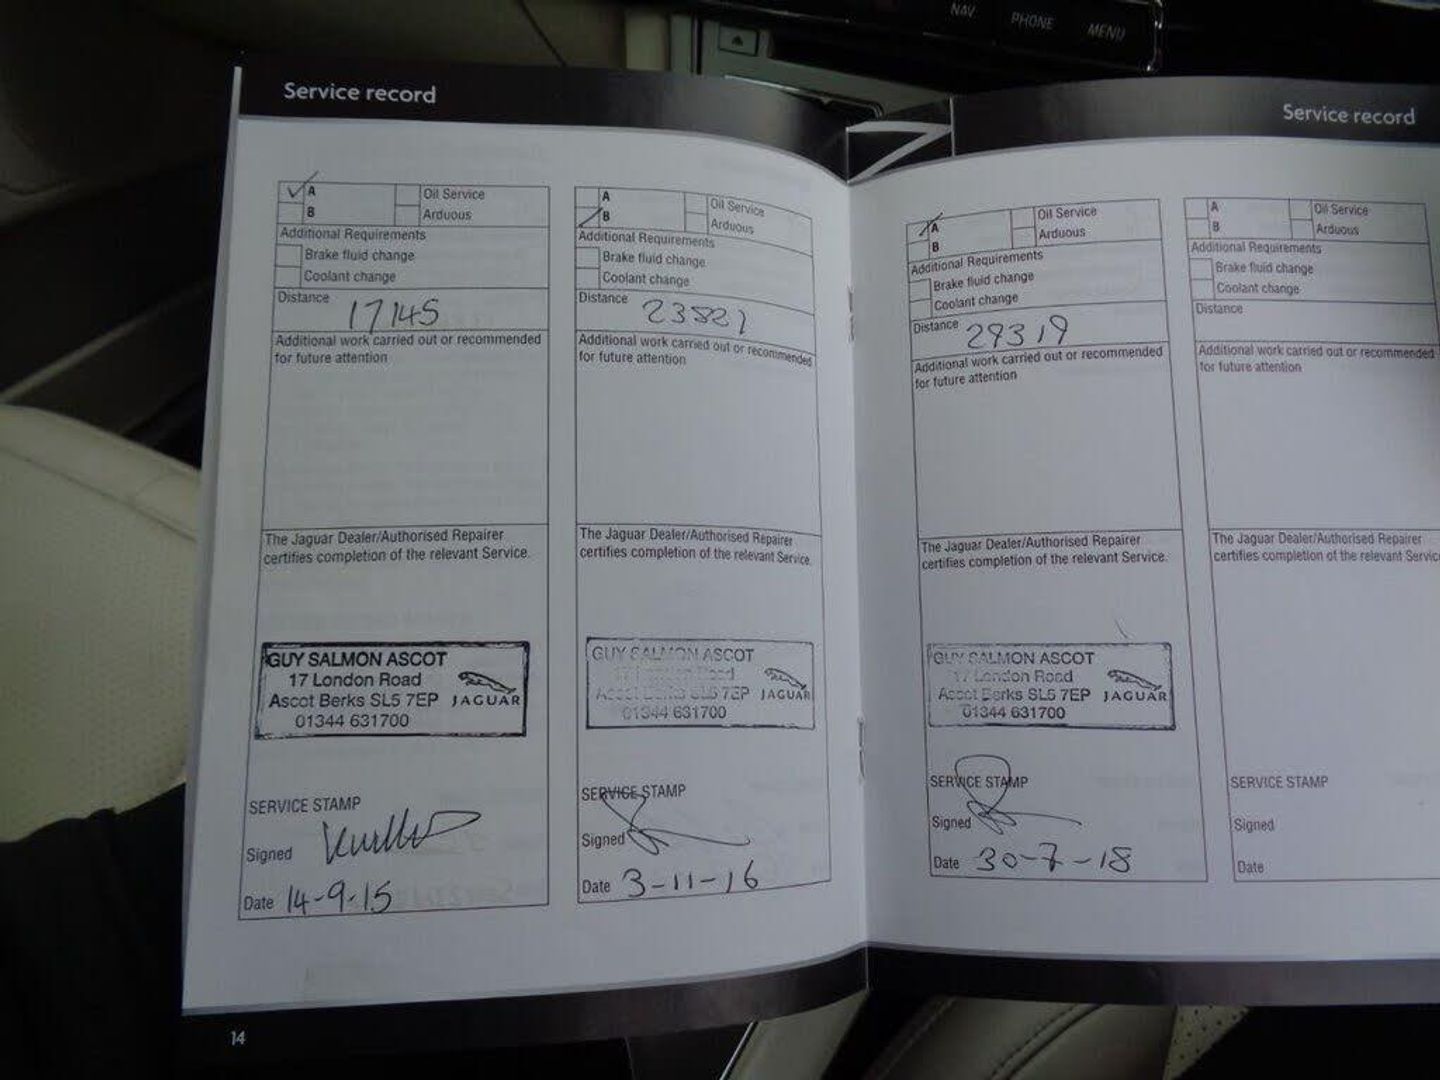 NAV PHONE MENU
Service record
A Oil Service
B Arduous
Additional Requirements
Brake fluid change
Coolant change
Distance 17145
Additional work carried out or recommended
for future attention
The Jaguar Dealer/Authorised Repairer
certifies completion of the relevant Service.
GUY SALMON ASCOT
17 London Road
Ascot Berks SL5 7EP JAGUAR
01344 631700
SERVICE STAMP
Signed
Date 14-9-15
A Oil Service
B Arduous
Additional Requirements
Brake fluid change
Coolant change
Distance
Additional work carried out or recommended
for future attention
The Jaguar Dealer/Authorised Repairer
certifies completion of the relevant Service.
GUY SALMON ASCOT
17 London Road
Ascot Berks SL5 7EP JAGUAR
01344 631700
SERVICE STAMP
Signed
Date 3-11-16
14
Service record
A Oil Service
B Arduous
Additional Requirements
Brake fluid change
Coolant change
Distance 29319
Additional work carried out or recommended
for future attention
The Jaguar Dealer/Authorised Repairer
certifies completion of the relevant Service.
GUY SALMON ASCOT
17 London Road
Ascot Berks SL5 7EP JAGUAR
01344 631700
SERVICE STAMP
Signed
Date 30-7-18
A Oil Service
B Arduous
Additional Requirements
Brake fluid change
Coolant change
Distance
Additional work carried out or recommended
for future attention
The Jaguar Dealer/Authorised Repairer
certifies completion of the relevant Servic
SERVICE STAMP
Signed
Date